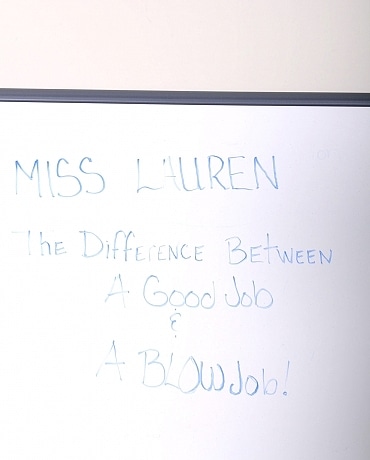 MISS LAUREN
The DiffeRENCE BetwEEN
A Good Job
&
A BLOWJob!